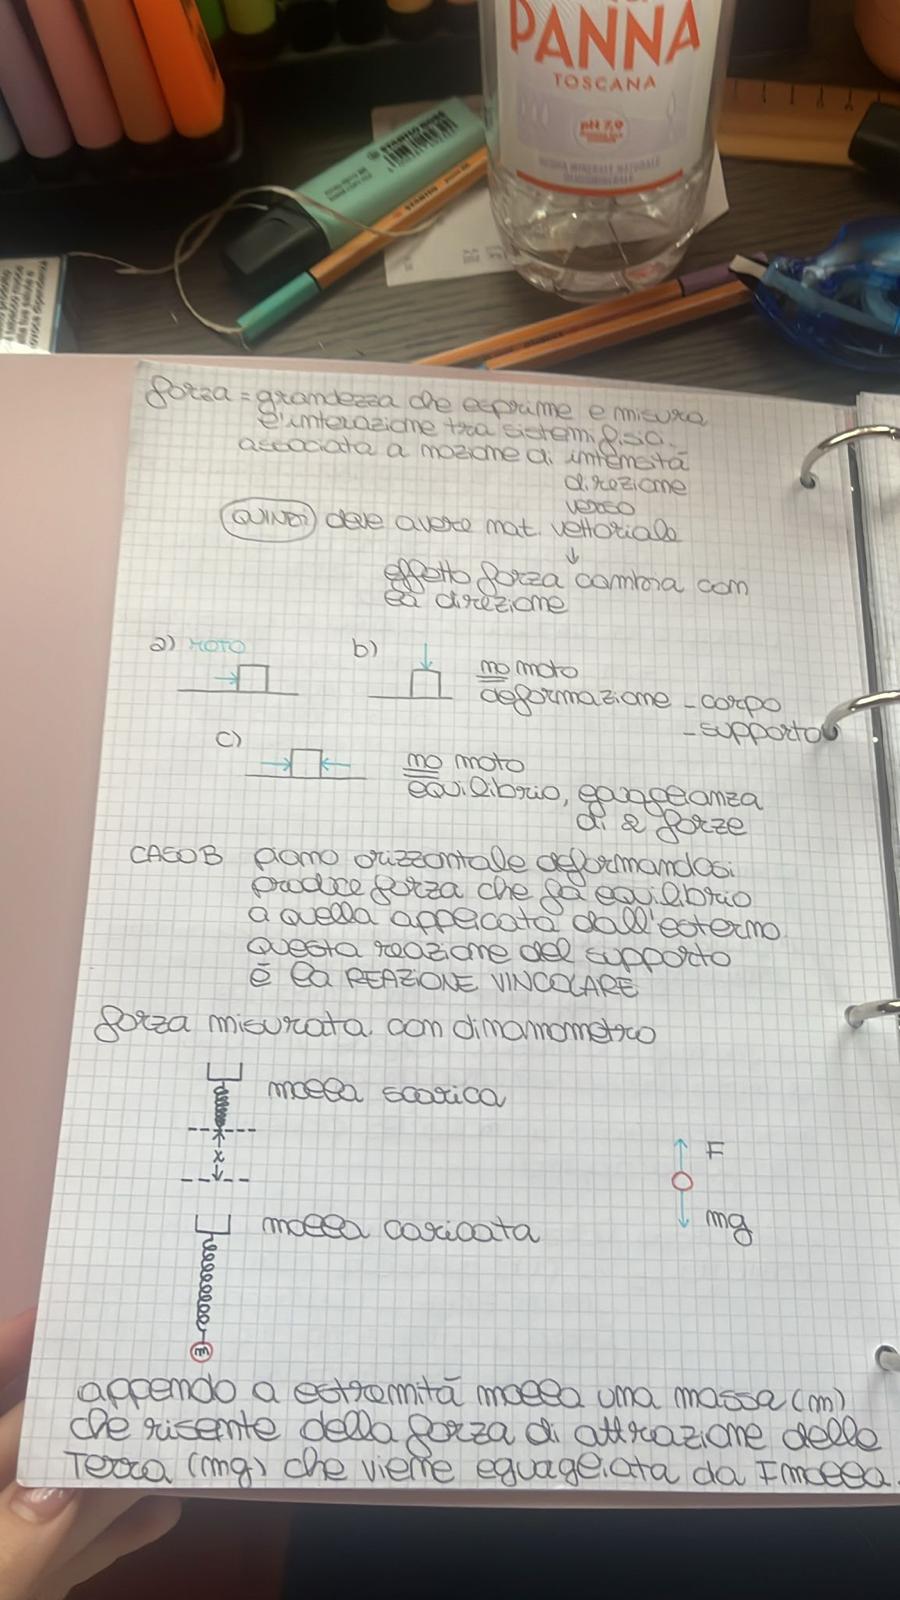 PANNA
TOSCANA
pH 7,9
ACQUA MINERALE NATURALE
OLIGOMINERALE
forza = grandezza che esprime e misura
l'interazione tra sistemi fisici.
associata a nozione di intensità
direzione
verso
QUINDI deve avere nat. vettoriale
↓
effetto forza cambia con
la direzione
a) MOTO
b)
no moto
deformazione - corpo
- supporto
c)
no moto
equilibrio, uguaglianza
di 2 forze
CASO B piano orizzontale deformandosi
produce forza che fa equilibrio
a quella applicata dall'esterno.
questa reazione del supporto
è la REAZIONE VINCOLARE
forza misurata con dinamometro
molla scarica
x
F
mg
molla caricata
m
appendo a estremità molla una massa (m)
che risente della forza di attrazione della
Terra (mg) che viene eguagliata da Fmolla.